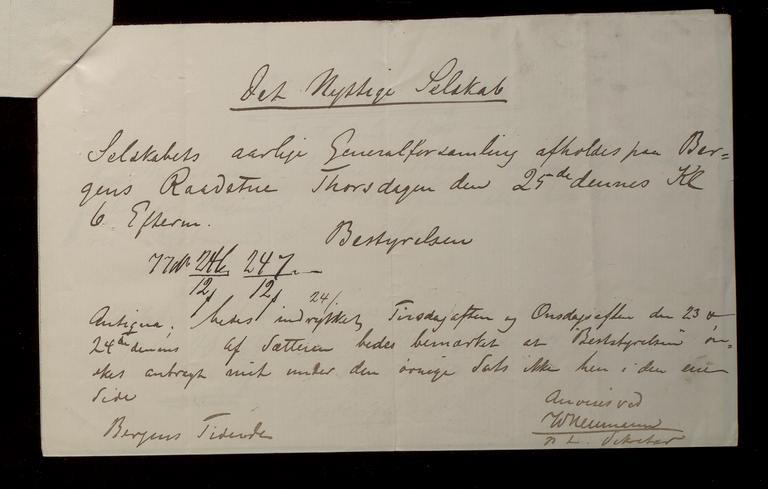 Det Nyttige Selskab
Selskabets aarlige Generalforsamling afholdes paa Ber=
gens Raadstue Thorsdagen den 25de dennes Kl
6 Efterm.
Bestyrelsen
246 247
12 12
24/
Antiqua, bedes indrykket Tirsdagaften og Onsdagaften den 23 &
24de dennes af Sætteren bedes bemærket at "Beststyrelsen" øn-
skes anbragt midt under den øvrige Sats ikke hen i den ene
Side
Anvises ved
Bergens Tidende
Sekretær